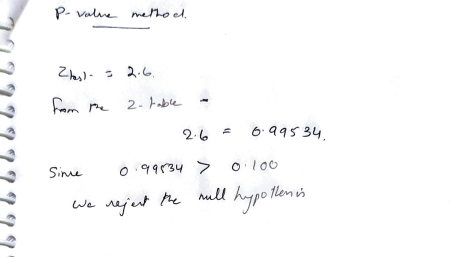 P-value method.
Ztest = 2.6.
from the Z-table -
2.6 = 0.99534.
Since 0.99534 > 0.100
we reject the null hypothesis